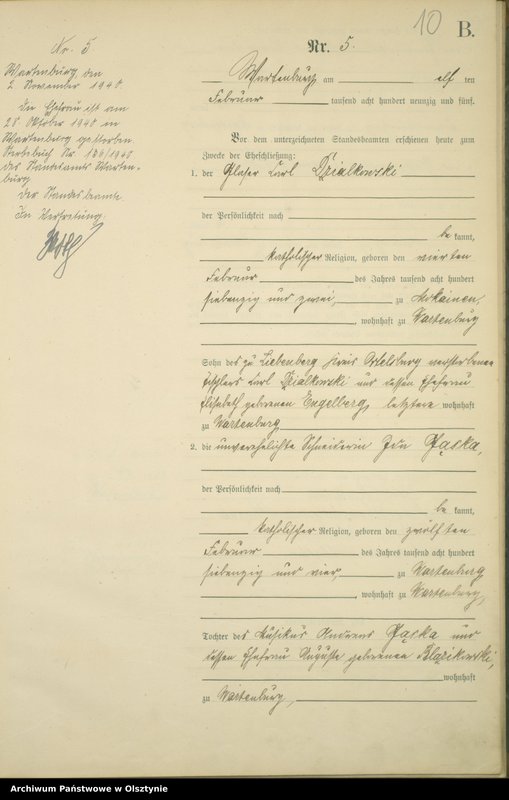 10
B.
Nr. 5.
Wartenburg, am elf ten
Februar tausend acht hundert neunzig und fünf.
Vor dem unterzeichneten Standesbeamten erschienen heute zum
Zwecke der Eheschließung:
1. der Glaser Carl Dzialkowski
der Persönlichkeit nach
be kannt,
katholischer Religion, geboren den vierten
Februar des Jahres tausend acht hundert
siebenzig und zwei, zu
, wohnhaft zu Wartenburg
Sohn des zu Liebenberg Kreis Ortelsburg verstorbenen
Tischlers Carl Dzialkowski und dessen Ehefrau
Elisabeth geborenen Engelberg, letztere wohnhaft
zu Wartenburg
2. die unverehelichte Schneiderin Ida
der Persönlichkeit nach
be kannt,
katholischer Religion, geboren den zwölften
Februar des Jahres tausend acht hundert
siebenzig und vier, zu Wartenburg
, wohnhaft zu Wartenburg,
Tochter des Musikus Andreas und
dessen Ehefrau Auguste geborenen Blazikowski,
wohnhaft
zu Wartenburg,
Nr. 5
Wartenburg, den
2. November 1940.
Die Ehefrau ist am
28. Oktober 1940 in
Wartenburg gestorben.
Sterbebuch Nr. 136/1940
des Standesamts Warten-
burg.
Der Standesbeamte
In Vertretung:
Archiwum Państwowe w Olsztynie